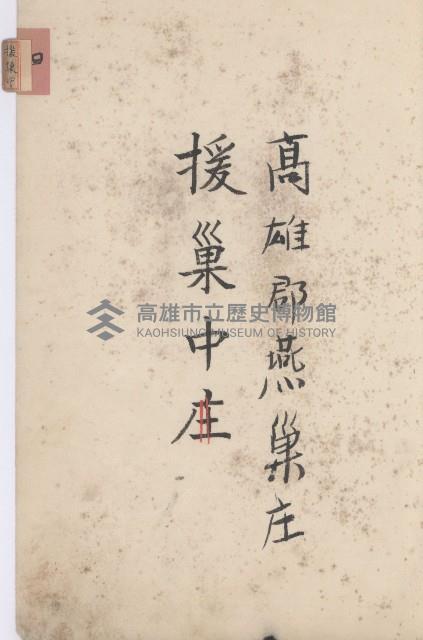 高雄郡燕巢庄
援巢中庄
高雄市立歷史博物館
KAOHSIUNG MUSEUM OF HISTORY